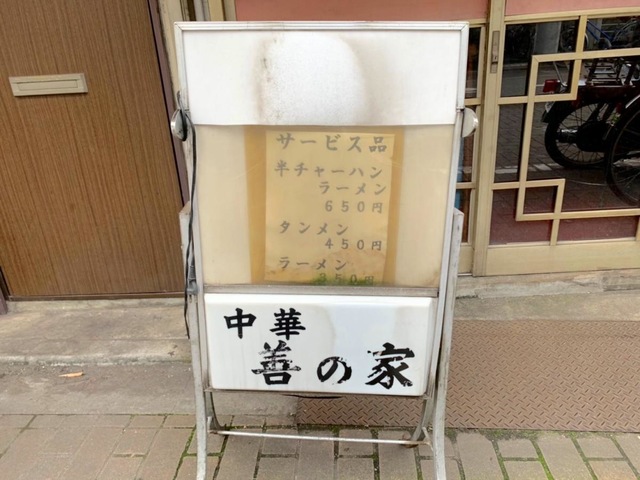 サービス品
半チャーハン
ラーメン
650円
タンメン
450円
ラーメン
350円
中華
善の家